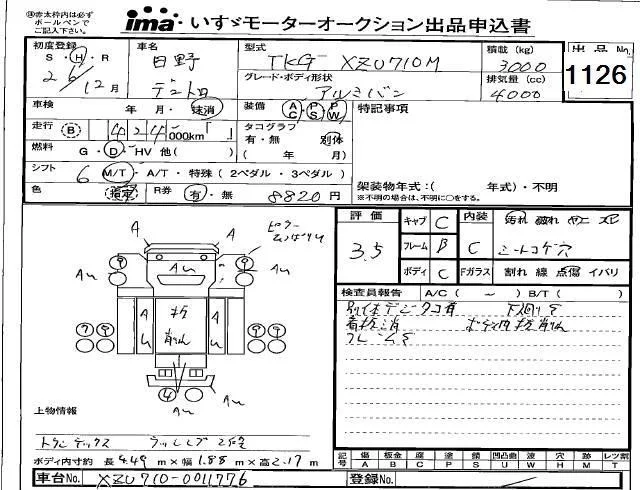 ㊟赤太枠内は必ず
ボールペンで
ご記入下さい。
ima いすゞモーターオークション出品申込書
初度登録 S・H・R 26年 12月
車名 日野 デュトロ
型式 TKG-XZU710M
積載(kg) 3000
出品No. 1126
グレード・ボディ形状 アルミバン
排気量(cc) 4000
車検 年・月・抹消
装備 AC・PS・PW
特記事項
走行 B 424,000km
タコグラフ 有・無 別体
( 年 月)
燃料 G・D・HV 他( )
シフト 6 M/T・A/T・特殊(2ペダル・3ペダル)
色 指定 R券 有・無 8820円
架装物年式:( 年式)・不明
※不明の場合は、不明に○をする。
評価 3.5
キャブ C 内装 C 汚れ 破れ ヤニ スレ
フレーム B シートコゲ穴
ボディ C Fガラス 割れ 線 点傷 イバリ
検査員報告 A/C( ~ ) B/T( )
別体デジタコ有 下回りサ
看板消 ボデー内板削れ
フレームサ
A A ミラー
9 AU 9
AU AU
AU 板削れ AU
9 9 9
4
AU AU
上物情報
トランテックス ラッシング2段
ボディ内寸約 長4.49m×幅1.88m×高2.17m
記号 傷A 板金B 腐C 塗P 錆S 凹凸曲U 波W 穴H 跡M レツ割T
車台No. XZU710-0011776
登録No.